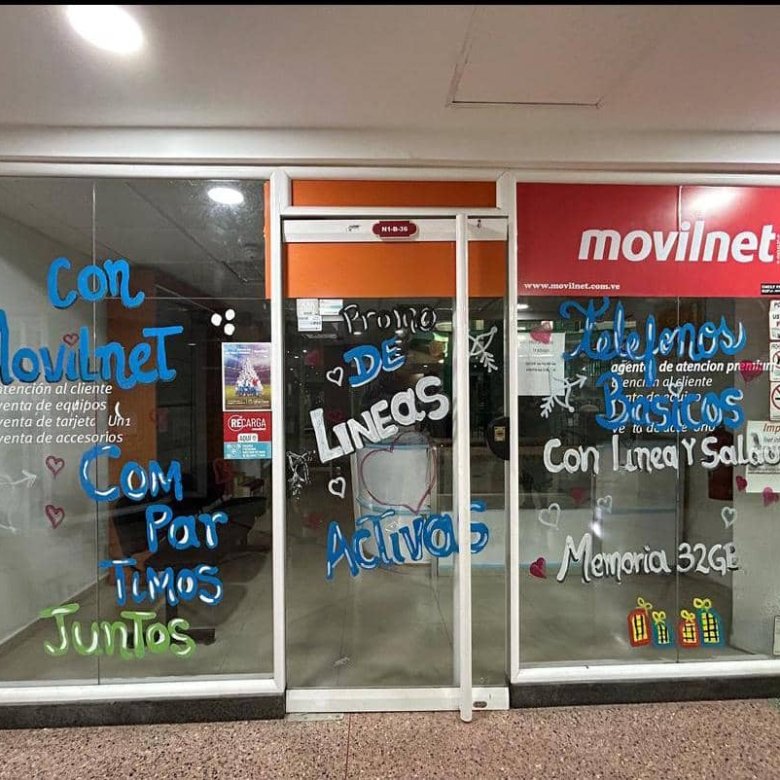 N1-B-36
movilnet
www.movilnet.com.ve
Con
Movilnet
atención al cliente
venta de equipos
venta de tarjeta Un1
venta de accesorios
Com
Par
Timos
Juntos
RECARGA
AQUÍ
Promo
DE
Lineas
Activas
Telefonos
agente de atencion premium
atención al cliente
Básicos
Con Linea Y Saldo
Memoria 32GB